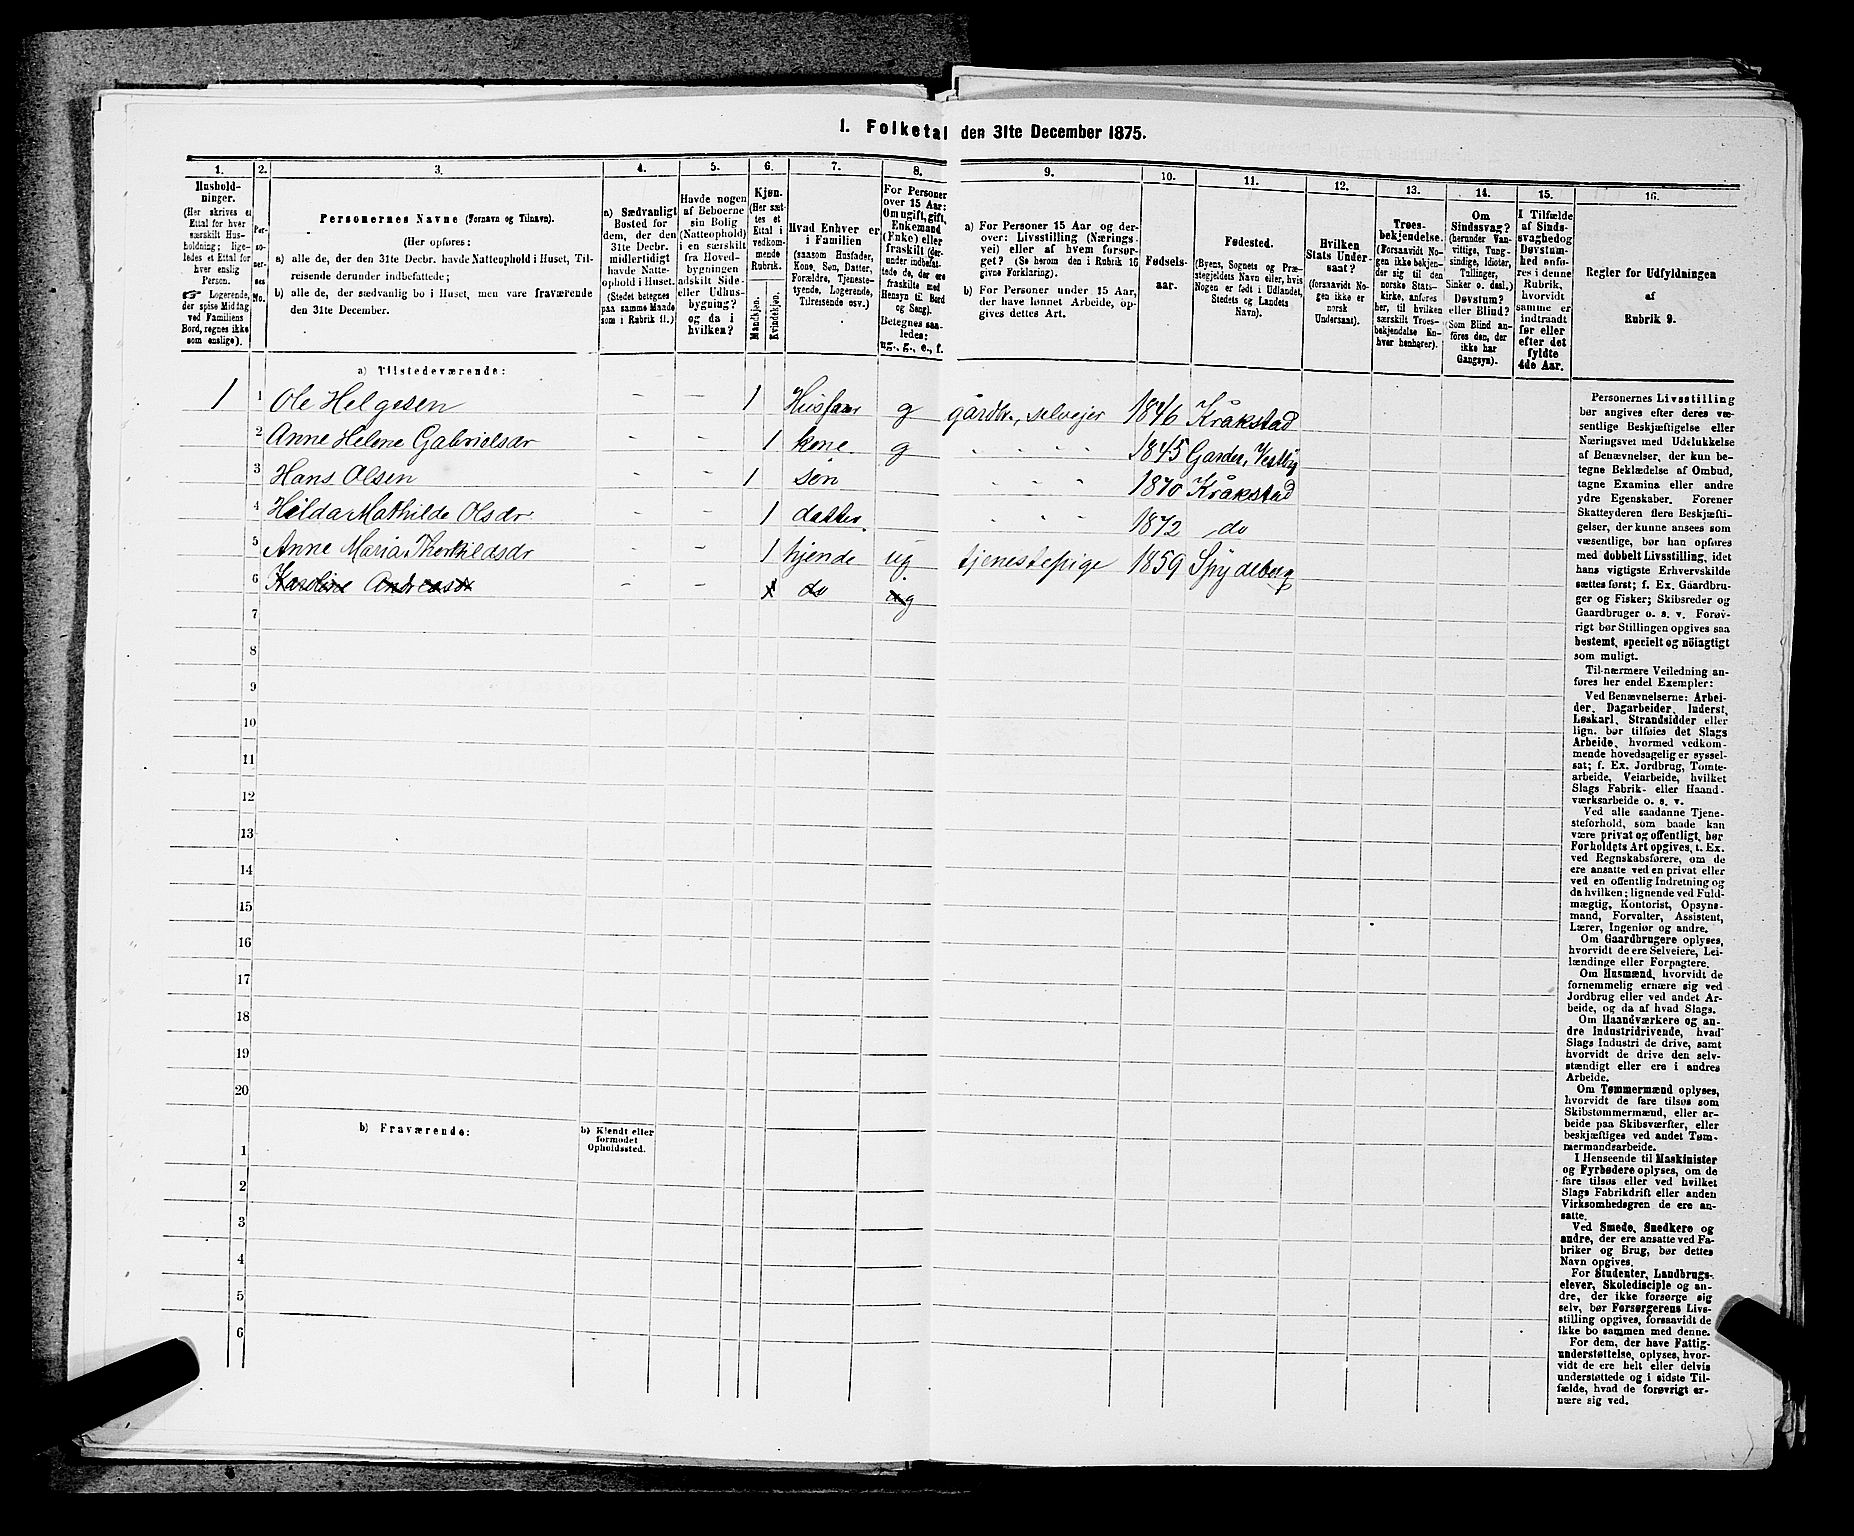 1. Folketal den 31te December 1875.
1.
Hushold-
ninger.
(Her skrives et
Ettal for hver
særskilt Hus-
holdning; lige-
ledes et Ettal for
hver enslig
Person.
☞ Logerende,
der spise Middag
ved Familiens
Bord, regnes ikke
som enslige).
2.
Per-
so-
ner-
nes
No.
3.
Personernes Navne (Fornavn og Tilnavn).
(Her opføres:
a) alle de, der den 31te Decbr. havde Natteophold i Huset, Til-
reisende derunder indbefattede;
b) alle de, der sædvanlig bo i Huset, men vare fraværende
den 31te December.
4.
a) Sædvanligt
Bosted for
dem, der den
31te Decbr.
midlertidigt
havde Natte-
ophold i Huset.
(Stedet betegnes
paa samme Maade
som i Rubrik 11.)
5.
Havde nogen
af Beboerne
sin Bolig
(Natteophold)
i en særskilt
fra Hoved-
bygningen
adskilt Side-
eller Udhus-
bygning?
og da i
hvilken?
6.
Kjøn.
(Her sæt-
tes et
Ettal i
vedkom-
mende
Rubrik.
Mandkjøn.
Kvindekjøn.
7.
Hvad Enhver er
i Familien
(saasom Husfader,
Kone, Søn, Datter,
Forældre, Tjeneste-
tyende, Logerende,
Tilreisende osv.)
8.
For Personer
over 15 Aar:
Om ugift, gift,
Enkemand
(Enke) eller
fraskilt (der-
under indbefat-
tede de, der ere
fraskilte med
Hensyn til Bord
og Seng).
Betegnes saa-
ledes:
ug., g., e., f.
9.
a) For Personer 15 Aar og der-
over: Livsstilling (Nærings-
vei) eller af hvem forsør-
get? (Se herom den i Rubrik 16
givne Forklaring).
b) For Personer under 15 Aar,
der have lønnet Arbeide, op-
gives dettes Art.
10.
Fødsels-
aar.
11.
Fødested.
(Byens, Sognets og Præ-
stegjeldets Navn eller, hvis
Nogen er født i Udlandet,
Stedets og Landets
Navn).
12.
Hvilken
Stats Under-
saat?
(forsaavidt No-
gen ikke er
norsk
Undersaat).
13.
Troes-
bekjendelse.
(Forsaavidt No-
gen ikke bekjen-
der sig til den
norske Stats-
kirke, anføres
her, til hvilken
særskilt Troes-
bekjendelse En-
hver henhører).
14.
Om
Sindssvag?
(herunder Van-
vittige, Tung-
sindige, Idioter,
Tullinger,
Sinker o. desl.)
Døvstum?
eller Blind?
(Som Blind an-
føres den, der
ikke har
Gangsyn).
15.
I Tilfælde
af Sinds-
svaghed og
Døvstum-
hed anfø-
res i denne
Rubrik,
hvorvidt
samme er
indtraadt
før eller
efter det
fyldte
4de Aar.
16.
Regler for Udfyldningen
af
Rubrik 9.
a) Tilstedeværende:
1 1 Ole Helgesen - - 1 Husfaar g gårdbr., selvejer 1846 Kråkstad
2 Anne Helene Gabrielsdr - - 1 kone g " " " " 1845 Garder, Vestby
3 Hans Olsen - - 1 søn " " " 1870 Kråkstad
4 Hilda Mathilde Olsdr - - 1 datter " " " 1872 do
5 Anne Maria Therkildsdr - - 1 tjende ug tjenestepige 1859 Spydeberg
6 Karoline Andreasdr - - 1 do ug
7
8
9
10
11
12
13
14
15
16
17
18
19
20
b) Fraværende:
b) Kjendt eller
formodet
Opholdssted.
1
2
3
4
5
6
Personernes Livsstilling
bør angives efter deres væ-
sentlige Beskjæftigelse eller
Næringsvei med Udelukkelse
af Benævnelser, der kun be-
tegne Beklædelse af Ombud,
tagne Examina eller andre
ydre Egenskaber. Forener
Skatteyderen flere Beskjæfti-
gelser, der kunne ansees som
væsentlige, bør han opføres
med dobbelt Livsstilling, idet
hans vigtigste Erhvervskilde
sættes først; f. Ex. Gaardbru-
ger og Fisker; Skibsreder og
Gaardbruger o. s. v. Forøv-
rigt bør Stillingen opgives saa
bestemt, specielt og nøiagtigt
som muligt.
Til nærmere Veiledning an-
føres her endel Exempler:
Ved Benævnelserne: Arbei-
der, Dagarbeider, Inderst,
Løskarl, Strandsidder eller
lign. bør tilføies det Slags
Arbeide, hvormed vedkom-
mende hovedsagelig er syssel-
sat; f. Ex. Jordbrug, Tomte-
arbeide, Veiarbeide, hvilket
Slags Fabrik- eller Haand-
værksarbeide o. s. v.
Ved alle saadanne Tjene-
steforhold, som baade kan
være privat og offentligt, bør
Forholdets Art opgives, t. Ex.
ved Regnskabsførere, om de
ere ansatte ved en privat eller
ved en offentlig Indretning og
da hvilken; lignende ved Fuld-
mægtig, Kontorist, Opsyns-
mand, Forvalter, Assistent,
Lærer, Ingeniør og andre.
Om Gaardbrugere oplyses,
hvorvidt de ere Selveiere, Lei-
lændinge eller Forpagtere.
Om Husmænd, hvorvidt de
fornemmelig ernære sig ved
Jordbrug eller ved andet Ar-
beide, og da af hvad Slags.
Om Haandværkere og an-
dre Industridrivende, hvad
Slags Industri de drive, samt
hvorvidt de drive den selv-
stændigt eller ere i andres
Arbeide.
Om Tømmermænd oplyses,
hvorvidt de fare tilsøs som
Skibstømmermænd, eller ar-
beide paa Skibsværfter, eller
beskjæftiges ved andet Tøm-
mermandsarbeide.
I Henseende til Maskinister
og Fyrbødere oplyses, om de
fare tilsøs eller ved hvilket
Slags Fabrikdrift eller anden
Virksomhedsgren de ere an-
satte.
Ved Smede, Snedkere og
andre, der ere ansatte ved Fa-
briker og Brug, bør dettes
Navn opgives.
For Studenter, Landbrugs-
elever, Skoledisciple og an-
dre, der ikke forsørge sig
selv, bør Forsørgerens Livs-
stilling opgives, forsaavidt de
ikke bo sammen med denne.
For dem, der have Fattig-
understøttelse, oplyses, hvor-
vidt de ere helt eller delvis
understøttede og i sidste Til-
fælde, hvad de forøvrigt er-
nære sig ved.